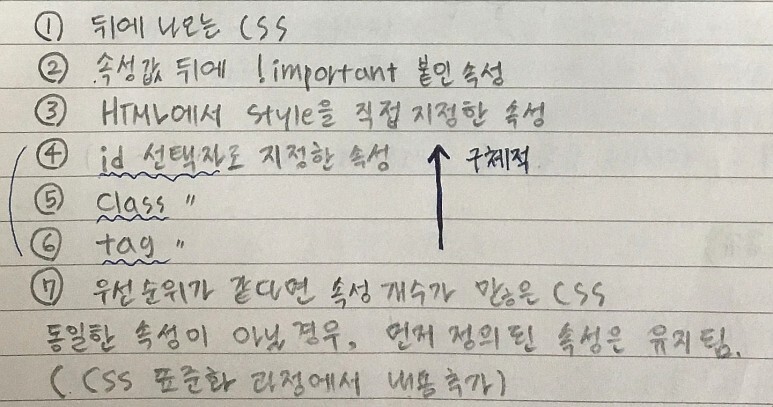 ① 뒤에 나오는 CSS
② 속성값 뒤에 !important 붙인 속성
③ HTML에서 style을 직접 지정한 속성
④ id 선택자로 지정한 속성 구체적
⑤ Class "
⑥ tag "
⑦ 우선순위가 같다면 속성 개수가 많은 CSS
동일한 속성이 아닐 경우, 먼저 정의된 속성은 유지됨.
(CSS 표준화 과정에서 내용 추가)